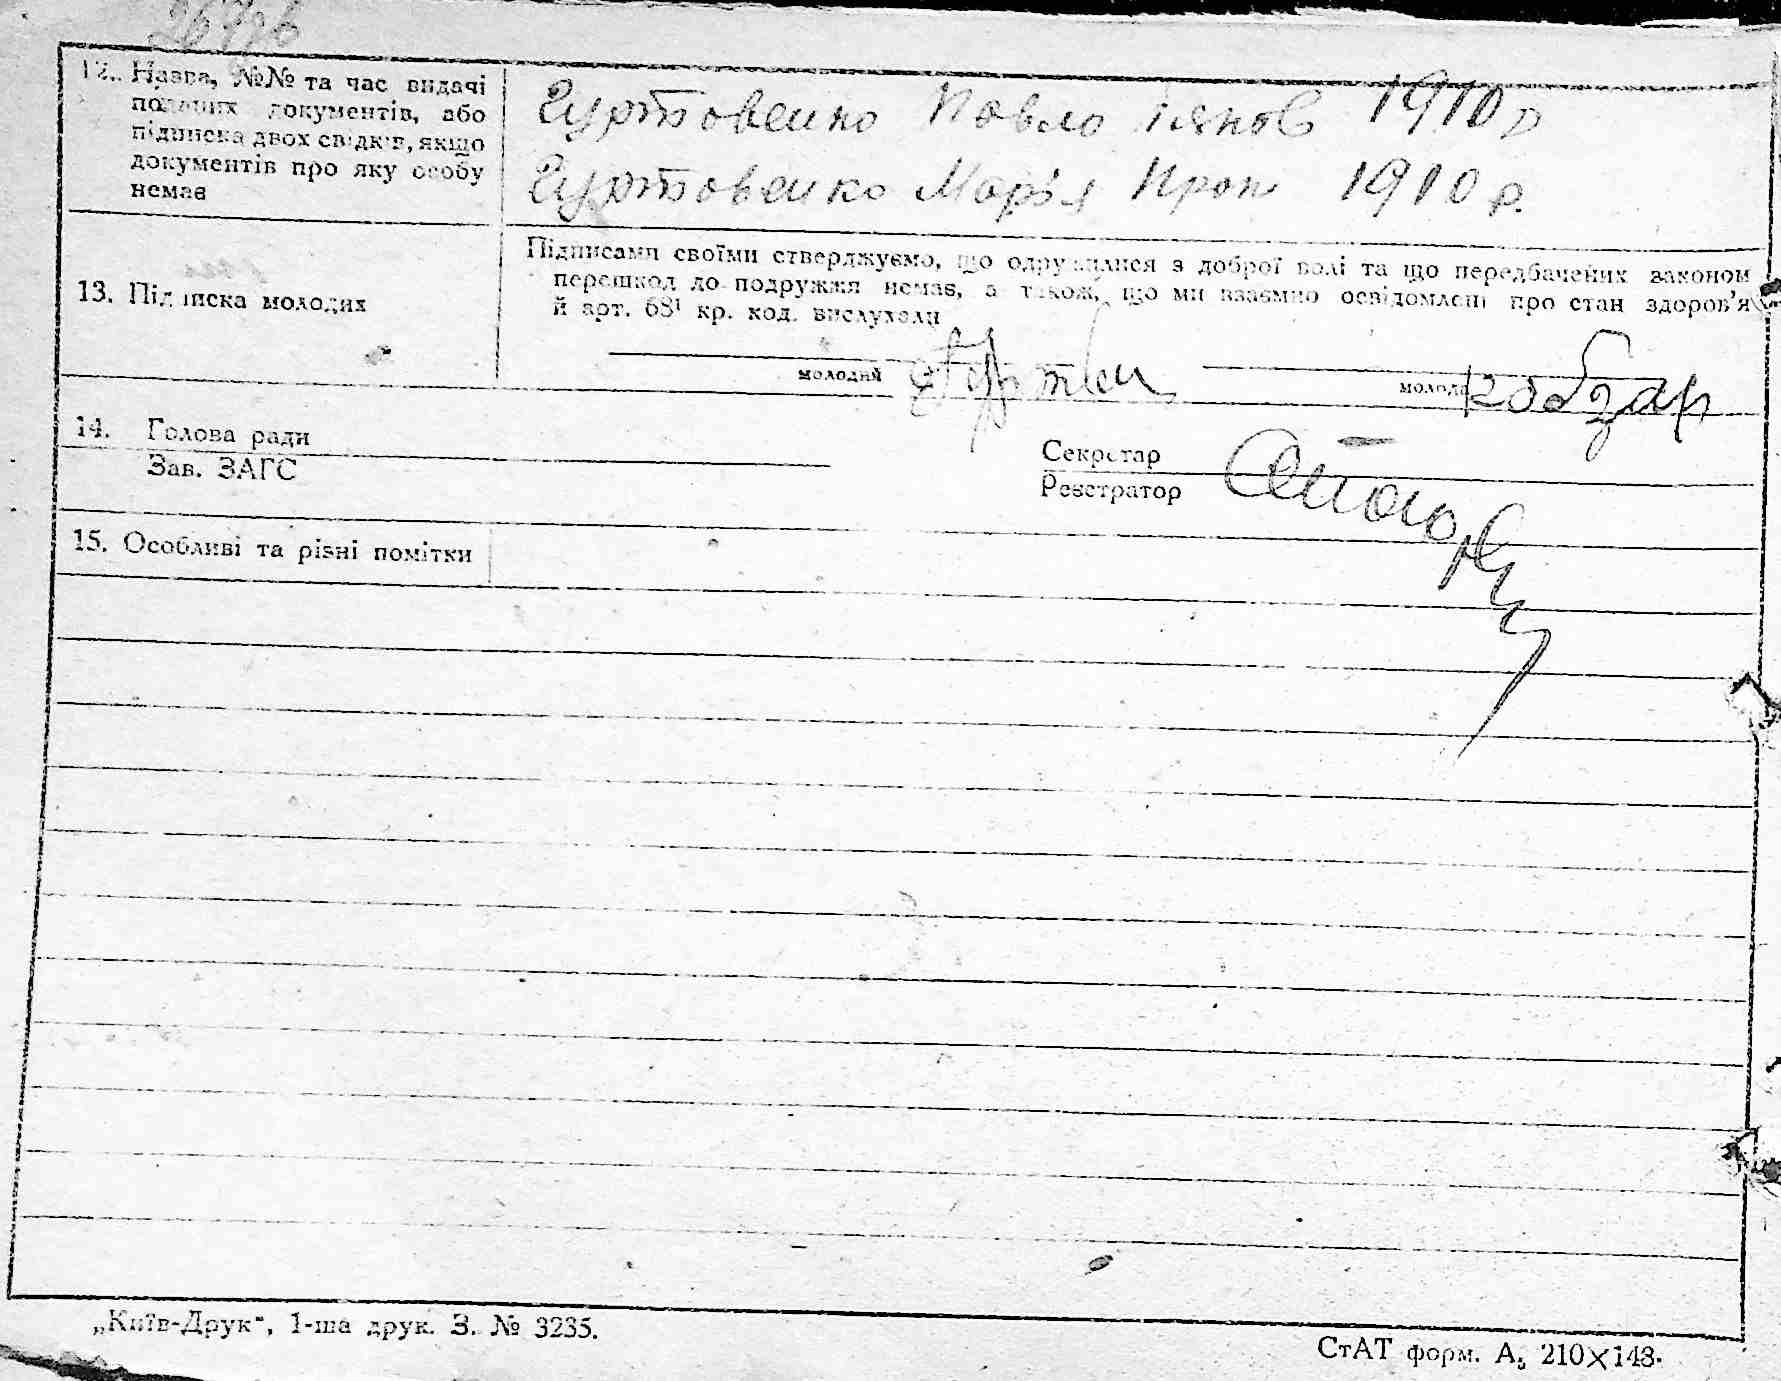 12. Назва, №№ та час видачі
поданих документів, або
підписка двох свідків, якщо
документів про яку особу
немає
Гуртовенко Павло Іяков 1910 р
Гуртовенко Мар'я Проп 1910 р.
13. Підписка молодих
Підписами своїми стверджуємо, що одружилися з доброї волі та що передбачених законом
перешкод до подружжя немає, а також, що ми взаємно освідомлені про стан здоров'я
й арт. 68¹ кр. код. вислухали
молодий
молода Кобзар
14. Голова ради
Зав. ЗАГС
Секретар
Реєстратор
15. Особливі та різні помітки
„Київ-Друк“, 1-ша друк. З. № 3235.
СтАТ форм. А₅ 210×148.